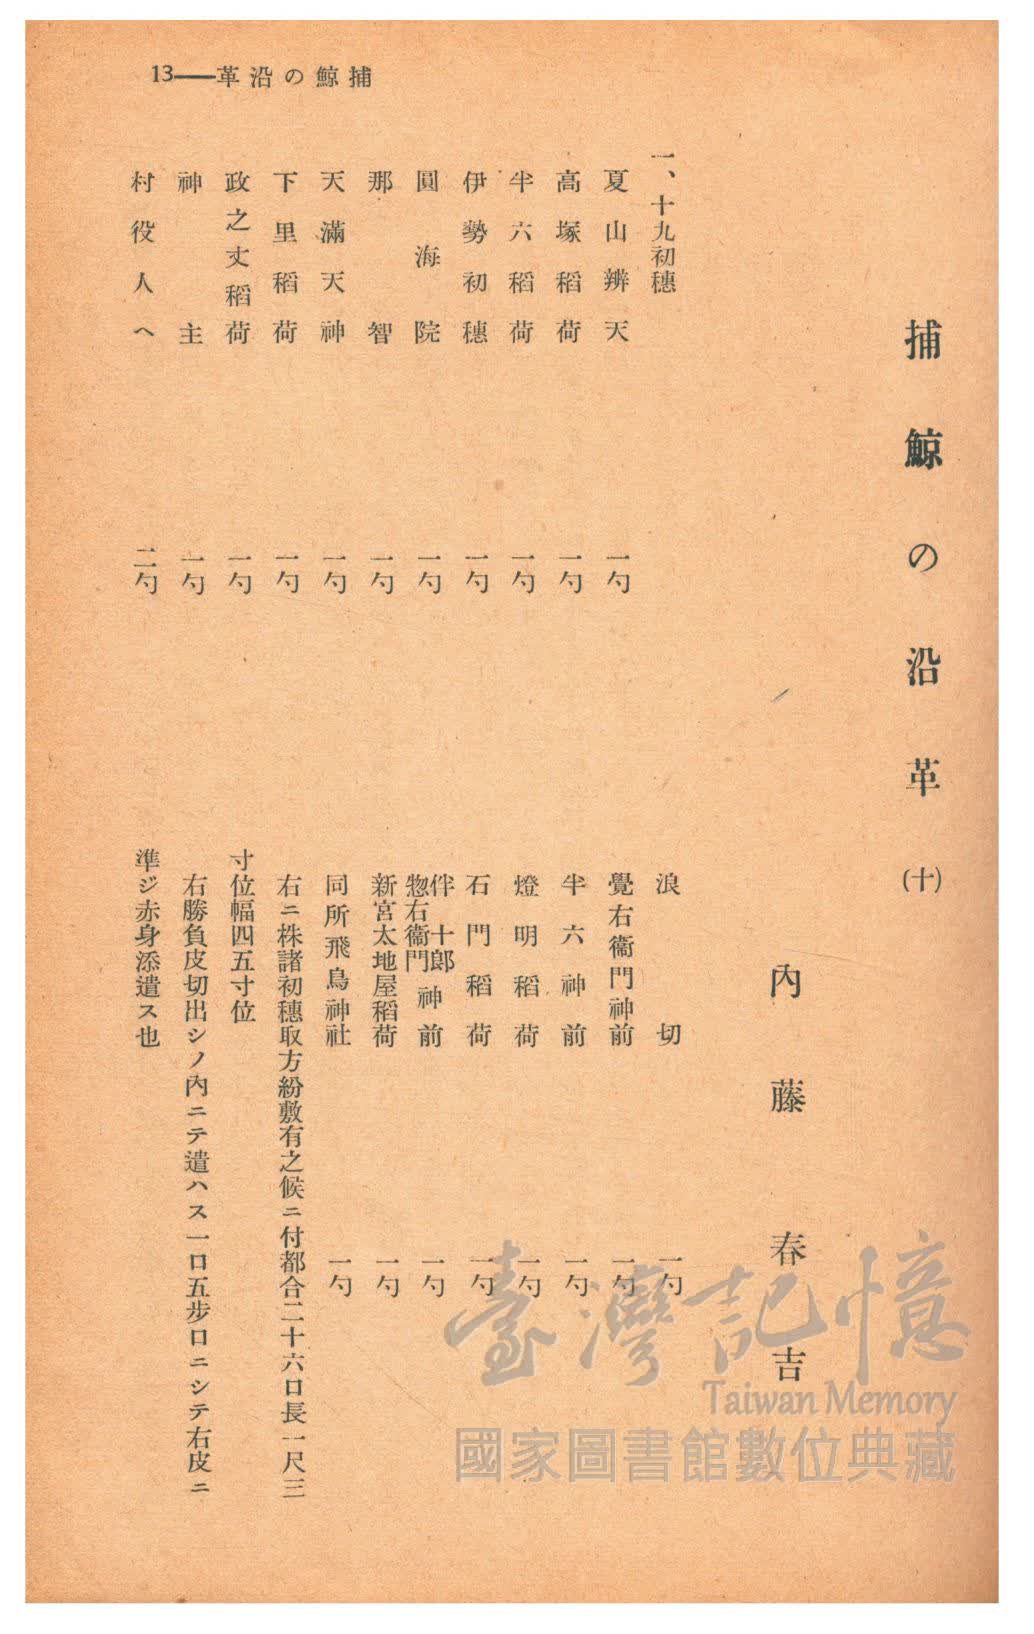 13——革沿の鯨捕
捕鯨の沿革(十)
內藤春吉
一、十九初穗
夏山辨天 一勺
高塚稻荷 一勺
半六稻荷 一勺
伊勢初穗 一勺
圓海院 一勺
那智 一勺
天滿天神 一勺
下里稻荷 一勺
政之丈稻荷 一勺
神主 一勺
村役人へ 二勺
浪切 一勺
覺右衞門神前 一勺
半六神前 一勺
燈明稻荷 一勺
石門稻荷 一勺
伴十郎
惣右衞門神前 一勺
新宮太地屋稻荷 一勺
同所飛鳥神社 一勺
右ニ株諸初穗取方紛敷有之候ニ付都合二十六口長一尺三
寸位幅四五寸位
右勝負皮切出シノ內ニテ遣ハス一口五步口ニシテ右皮ニ
準ジ赤身添遣ス也
臺灣記憶
Taiwan Memory
國家圖書館數位典藏